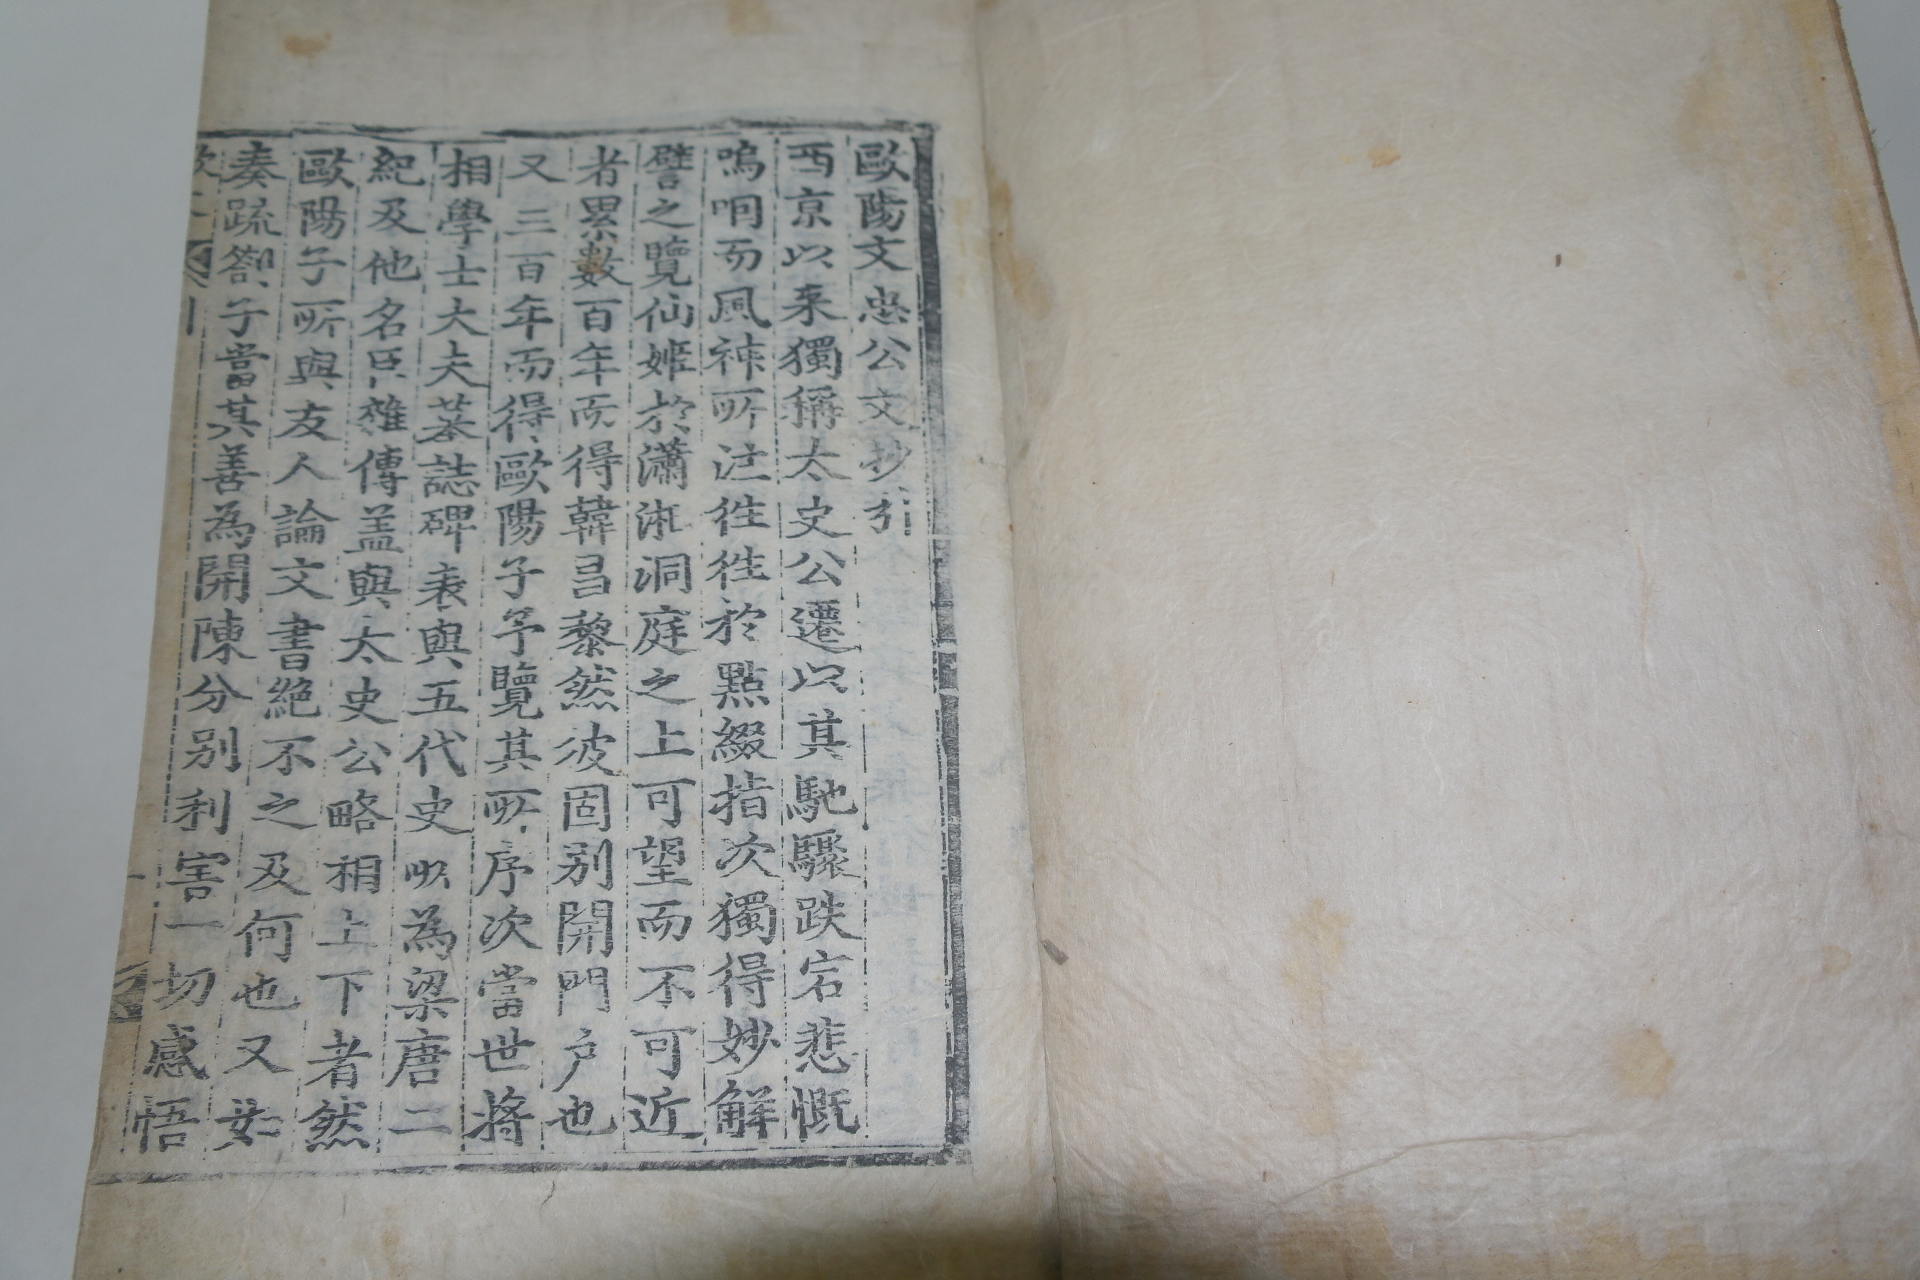 歐陽文忠公文抄引
西京以来獨稱太史公遷以其馳驟跌宕悲慨
嗚咽而風神所注往往於點綴指次獨得妙解
譬之覽仙姬於瀟湘洞庭之上可望而不可近
者累數百年而得韓昌黎然彼固別開門户也
又三百年而得歐陽子予覽其所序次當世將
相學士大夫墓誌碑表與五代史所為梁唐二
紀及他名臣雜傳盖與太史公略相上下者然
歐陽子所與友人論文書絕不之及何也又如
奏疏劄子當其善為開陳分別利害一切感悟